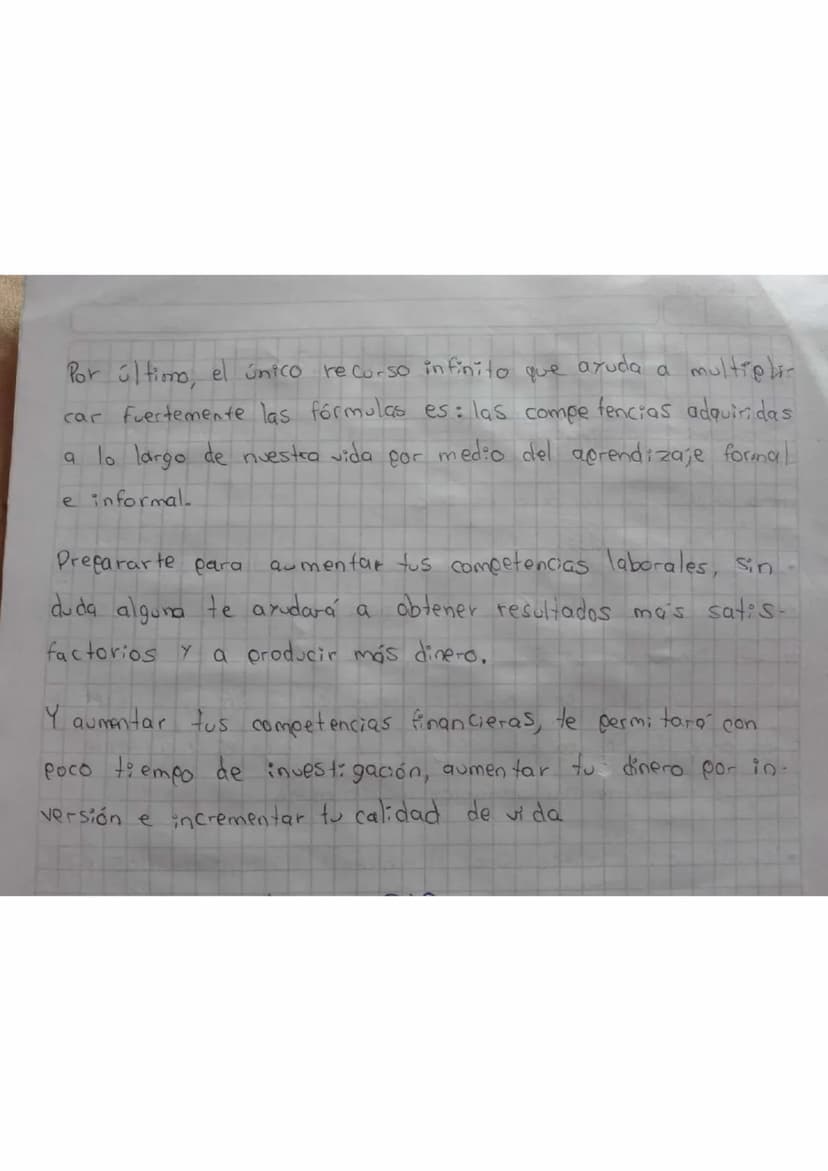 Por último, el único recurso infinito que ayuda a multipli-
car fuertemente las fórmulas es: las competencias adquiridas
a lo largo de nuestra vida por medio del aprendizaje formal
e informal.
Prepararte para aumentar tus competencias laborales, sin
duda alguna te ayudará a obtener resultados más satis-
factorios y a producir más dinero.
Y aumentar tus competencias financieras, te permitará con
poco tiempo de investigación, aumentar tu dinero por in-
versión e incrementar tu calidad de vida